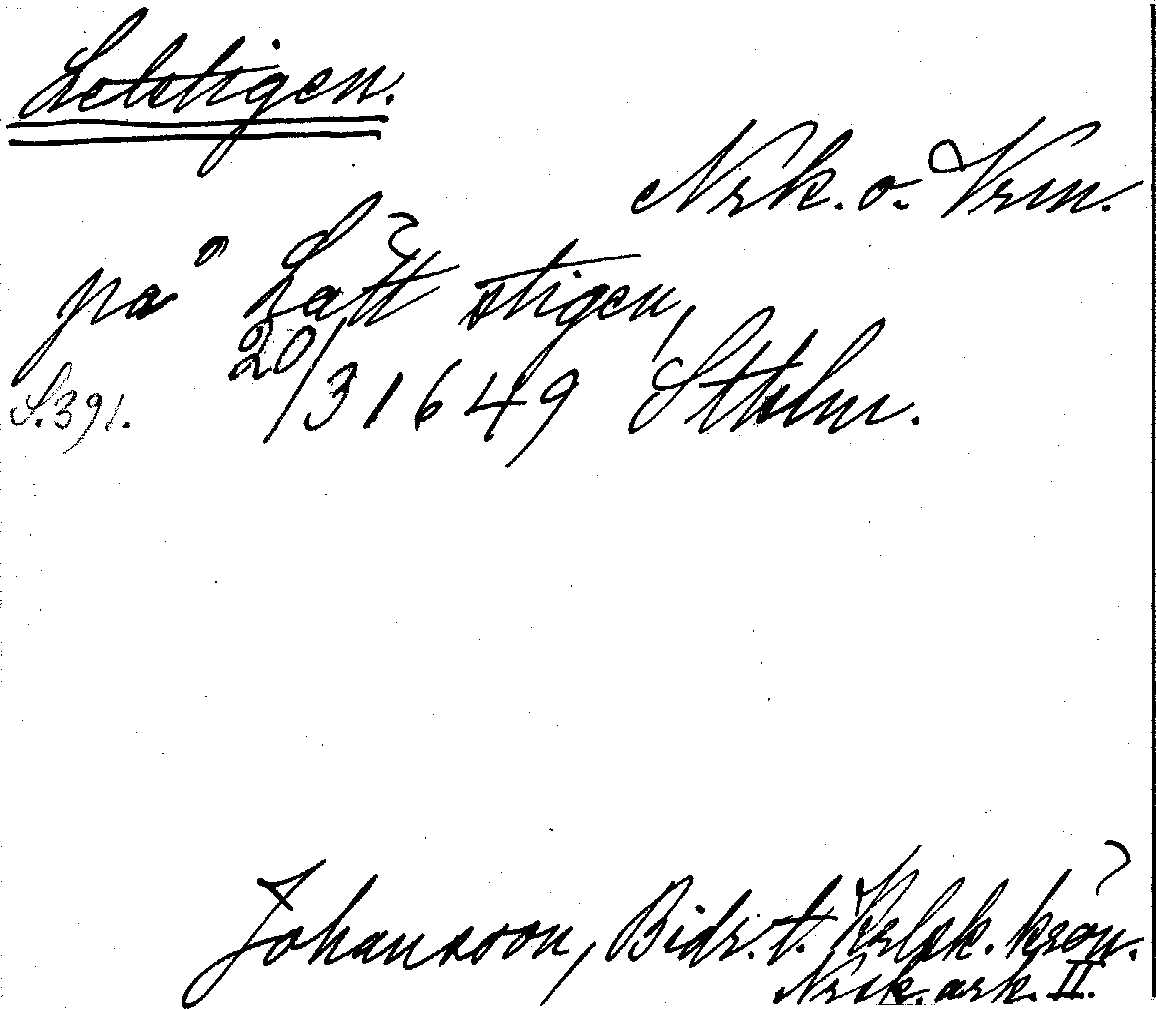 Letstigen.
Nrk. o. Vrm.
på Lätt stigen,
S. 391. 20/3 1649 Sthlm.
Johansson, Bidr. t. Krlsk. krön.
Nrik. ark. II.